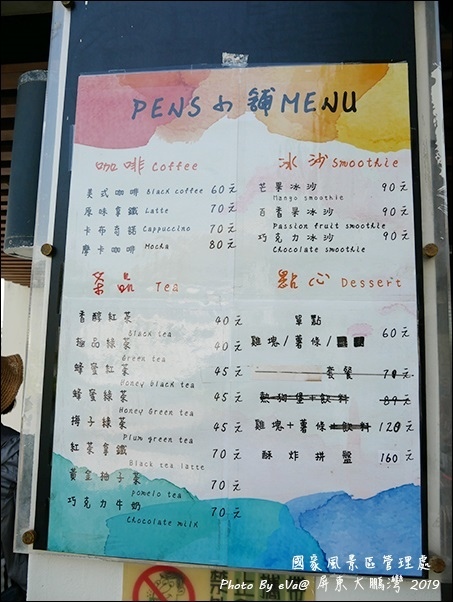 PENS小舖MENU
咖啡 Coffee
美式咖啡 Black coffee 60元
原味拿鐵 Latte 70元
卡布奇諾 Cappuccino 70元
摩卡咖啡 Mocha 80元
冰沙 Smoothie
芒果冰沙 90元
Mango smoothie
百香果冰沙 90元
Passion fruit smoothie
巧克力冰沙 90元
Chocolate smoothie
茶品 Tea
香醇紅茶 40元
Black tea
極品綠茶 40元
Green tea
蜂蜜紅茶 45元
Honey black tea
蜂蜜綠茶 45元
Honey Green tea
梅子綠茶 45元
Plum green tea
紅茶拿鐵 70元
Black tea latte
黃金柚子茶 70元
pomelo tea
巧克力牛奶 70元
Chocolate milk
點心 Dessert
單點
雞塊/薯條/ 60元
套餐 70元
熱狗堡+飲料 89元
雞塊+薯條+飲料 120元
酥炸拼盤 160元
國家風景區管理處
Photo By eVa@屏東大鵬灣 2019